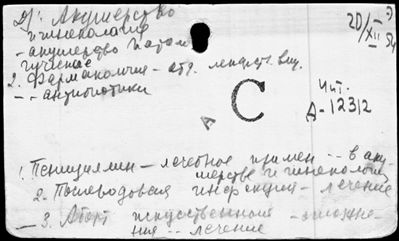 Др: Акушерство
и гинекология
- акушерство патол.
гическое
2. Фармакология - отд. лекарств. вещ.
- - антибиотики
20/XII 54
Чит.
А-12312
С
А
1. Пенициллин - лечебное примен. - - в аку-
шерстве и гинекологии
2. Послеродовая инфекция - лечение
3. Аборт искусственный - осложне-
ния - - лечение